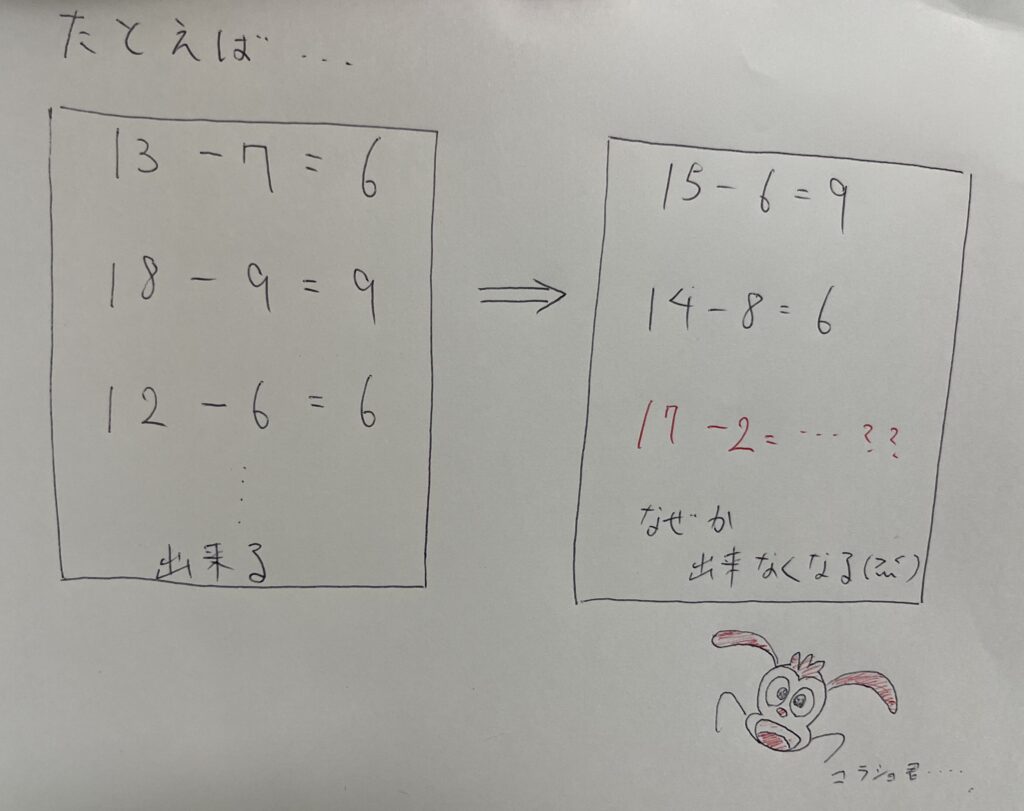 たとえば...
13 - 7 = 6
18 - 9 = 9
12 - 6 = 6
出来る
⇒
15 - 6 = 9
14 - 8 = 6
17 - 2 = … ??
なぜか
出来なくなる
コラショ君....